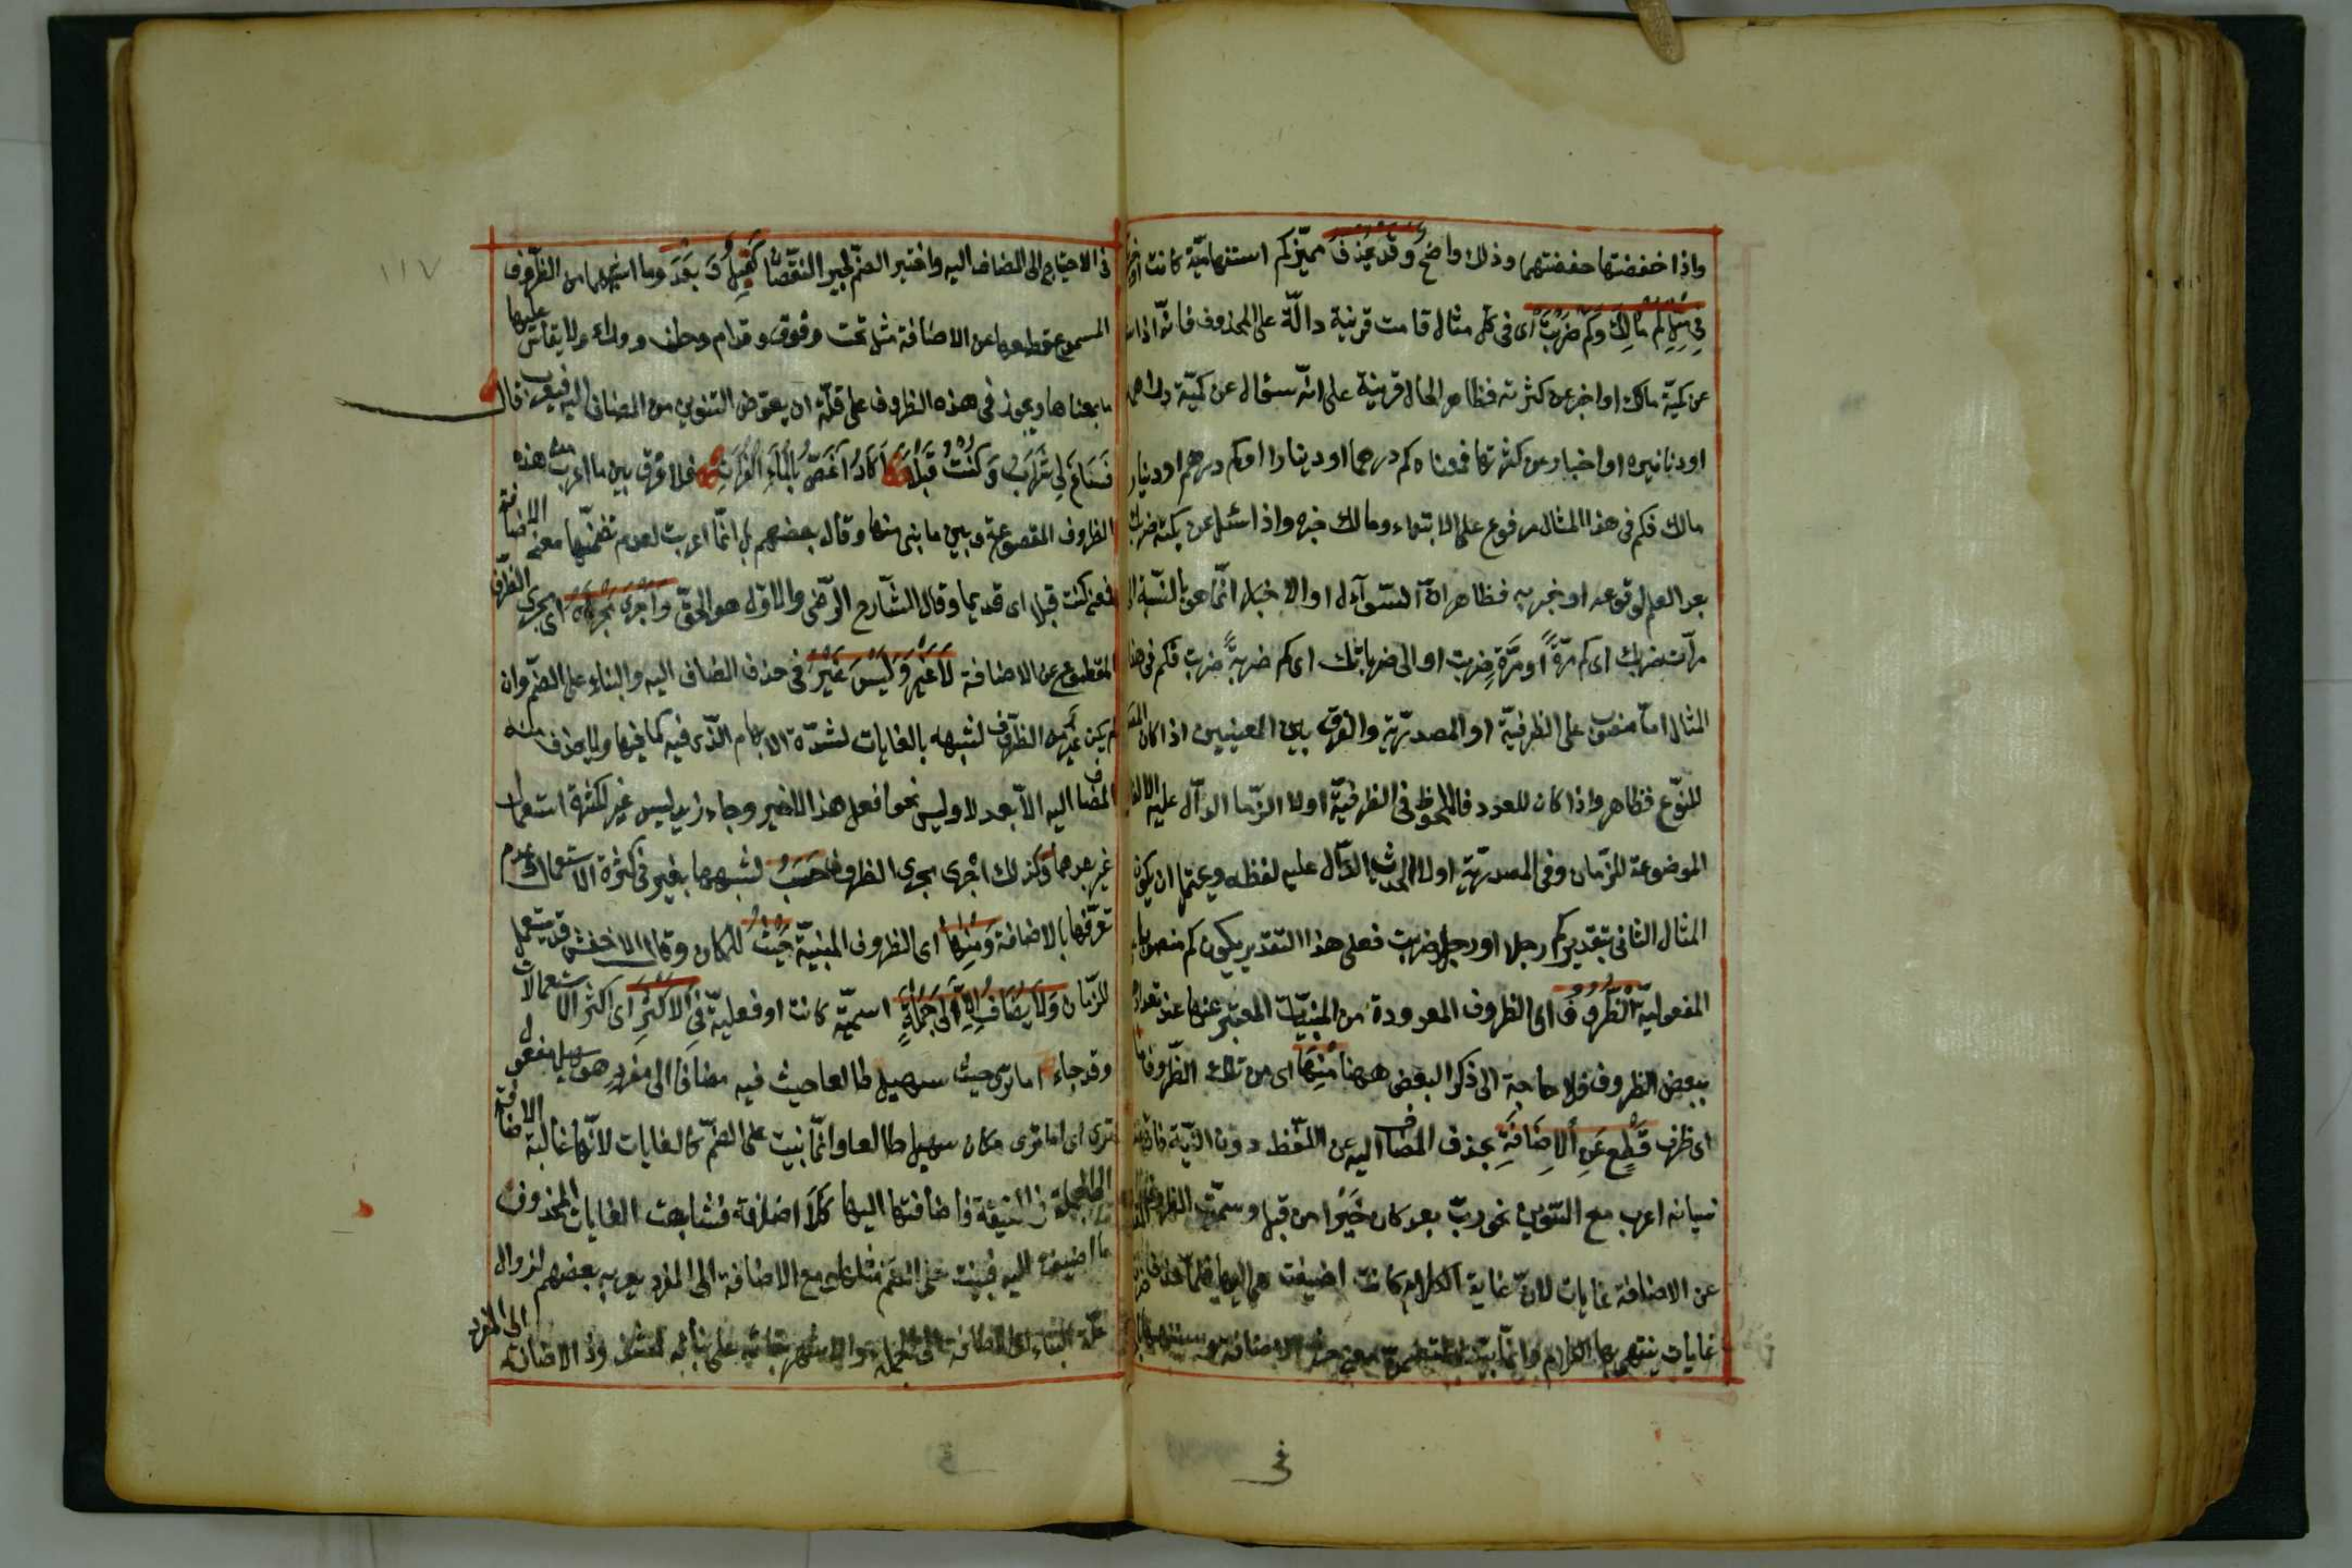 واذا خفضتها خفضتهما وذلك واضح وَقَدْ يُحْذَفُ مميّز كم استفهاميّة كانت او
فِي مِثْلِ كَمْ مَالُكَ وَكَمْ ضَرَبْتَ اى فى كلّ مثال قامت قرينة دالّة على المحذوف فانّه اذا
عن كميّة مالك او اخبر عن كثرته فظاهر الحال قرينة على انّه سئوال عن كميّة دراهمه
او دنانيره او اخبار عن كثرتها فمعناه كم درهما او دينارا او كم درهم او دينار
مالك فكم فى هذا المثال مرفوع على الابتداء ومالك خبره واذا سئل عن كمّيّة ضربك
بعد العلم لوقوعه او خبر به فظاهر انّ السّوآل او الاخبار انّما هو بالنّسبة الى
مرآت ضربك اى كم مرّةً او مرّةٍ ضربت او الى ضرباتك اى كم ضربةً ضربت فكم فى هذا
المثال امّا منصوب على الظرفيّة او المصدريّة والفرق بين المعنيين اذا كان المصدر
للنّوع فظاهر واذا كان للعدد فالملحوظ فى الظرفيّة اولا الزّمان الدآل عليه الالفاظ
الموضوعة للزّمان وفى المصدريّة اولا الحدث الدّآل عليه لفظه ويحتمل ان يكون
المثال الثانى بتقدير كم رجلا او رجل ضربت فعلى هذا التقدير يكون كم منصوبا على
المفعولية اَلظُّرُوفُ اى الظروف المعدودة من المبنيّات المعبّر عنها عند تعدادها
ببعض الظروف فلا حاجة الى ذكر البعض ههنا مِنْهَا اى من تلك الظّروف ما
اى ظرف قُطِعَ عَنِ اْلاِضَافَةِ بحذف المضاف اليه عن اللّفظ دون النّيّة فانه عند
نسيانه اعرب مع التنوين نحو ربّ بعد كان خيرًا من قبل وسمّيت الظروف
عن الاضافة غايات لانّ غاية الكلام كانت اضيفت هى اليه فلمّا حذف
غايات ينتهى بها الكلام وانّما بنيت لتضمّنها معنى حرف الاضافة وشبهها
فى الاحتياج الى المضاف اليه واختير الضمّ لجبر النّقصان كَقَبْلُ وَ بَعْدُ وما اشبههما من الظّروف
المسموع قطعها عن الاضافة مثل تحت وفوق وقدام وخلف ووراء ولا يقاس عليها
ما بمعناها ويجوز فى هذه الظروف على قلّة ان يعوّض التنوين من المضاف اليه فيعرب قال
فَسَاغَ لِي شَرَابُ وَكُنْتُ قَبْلاً اَكَادُ اَغَصُّ بِالْمَاءِ الْفُرَاتِ فلا فرق بين ما اعرب من هذه
الظروف المقطوعة وبين ما بنى منها وقال بعضهم بل انّما اعربت لعدم تضمّنها معنى الاضافة
فمعنى كنت قبلا اى قديما وقال الشّارح الرّضى والاوّل هو الحقّ وَاُجْرِىَ مَجْرَاهُ اى مجرى الظّرف
المقطوع عن الاضافة لاَغَيْرُ وَلَيْسَ غَيْرُ فى حذف المضاف اليه والبناء على الضّم وان
لم يكن غير من الظّروف لشبهه بالغايات لشدّة الابهام الّذى فيه كما فيها ولا يحذف منه
المضاف اليه الاّ بعد لا وليس نحو افعل هذا لا غير وجاء زيد ليس غير لكثرة استعمال
غير بعدهما وكذلك اجرى مجرى الظروف حَسْبُ لشبهها بغير فى كثرة الاستعمال وعدم
تعرّفها بالاضافة وَمِنْهَا اى الظروف المبنيّة حَيْثُ للمكان وقال الاخفش قد يستعمل
للزّمان وَلاَ يُضَافُ اِلاَّ اِلَى جُمْلَةٍ اسميّة كانت او فعليّة فِى اْلاَكْثَرِ اى اكثر الاستعمالات
وقد جاء اما ترى حيث سهيل طالعا حيث فيه مضافا الى مفرد هو سهيل مفعول
ترى اى اما ترى مكان سهيل طالعا وانّما بنيت على الضمّ كالغايات لانّها غالبة الاضافة
الى الجملة فى الحقيقة فاضافتها اليها كلا اضافة فشابهت الغايات المحذوف
ما اضيفت اليه فبنيت على الضم مثلها ومع الاضافة الى المفرد يعربه بعضهم لزوال
علّة البناء اى الاضافة الى الجملة والاشهر بقائه على بنائه لشذوذ الاضافة الى المفرد
١١٧